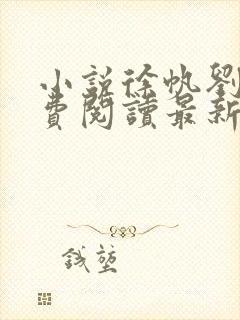 小說徐帆劉
費閱讀最新